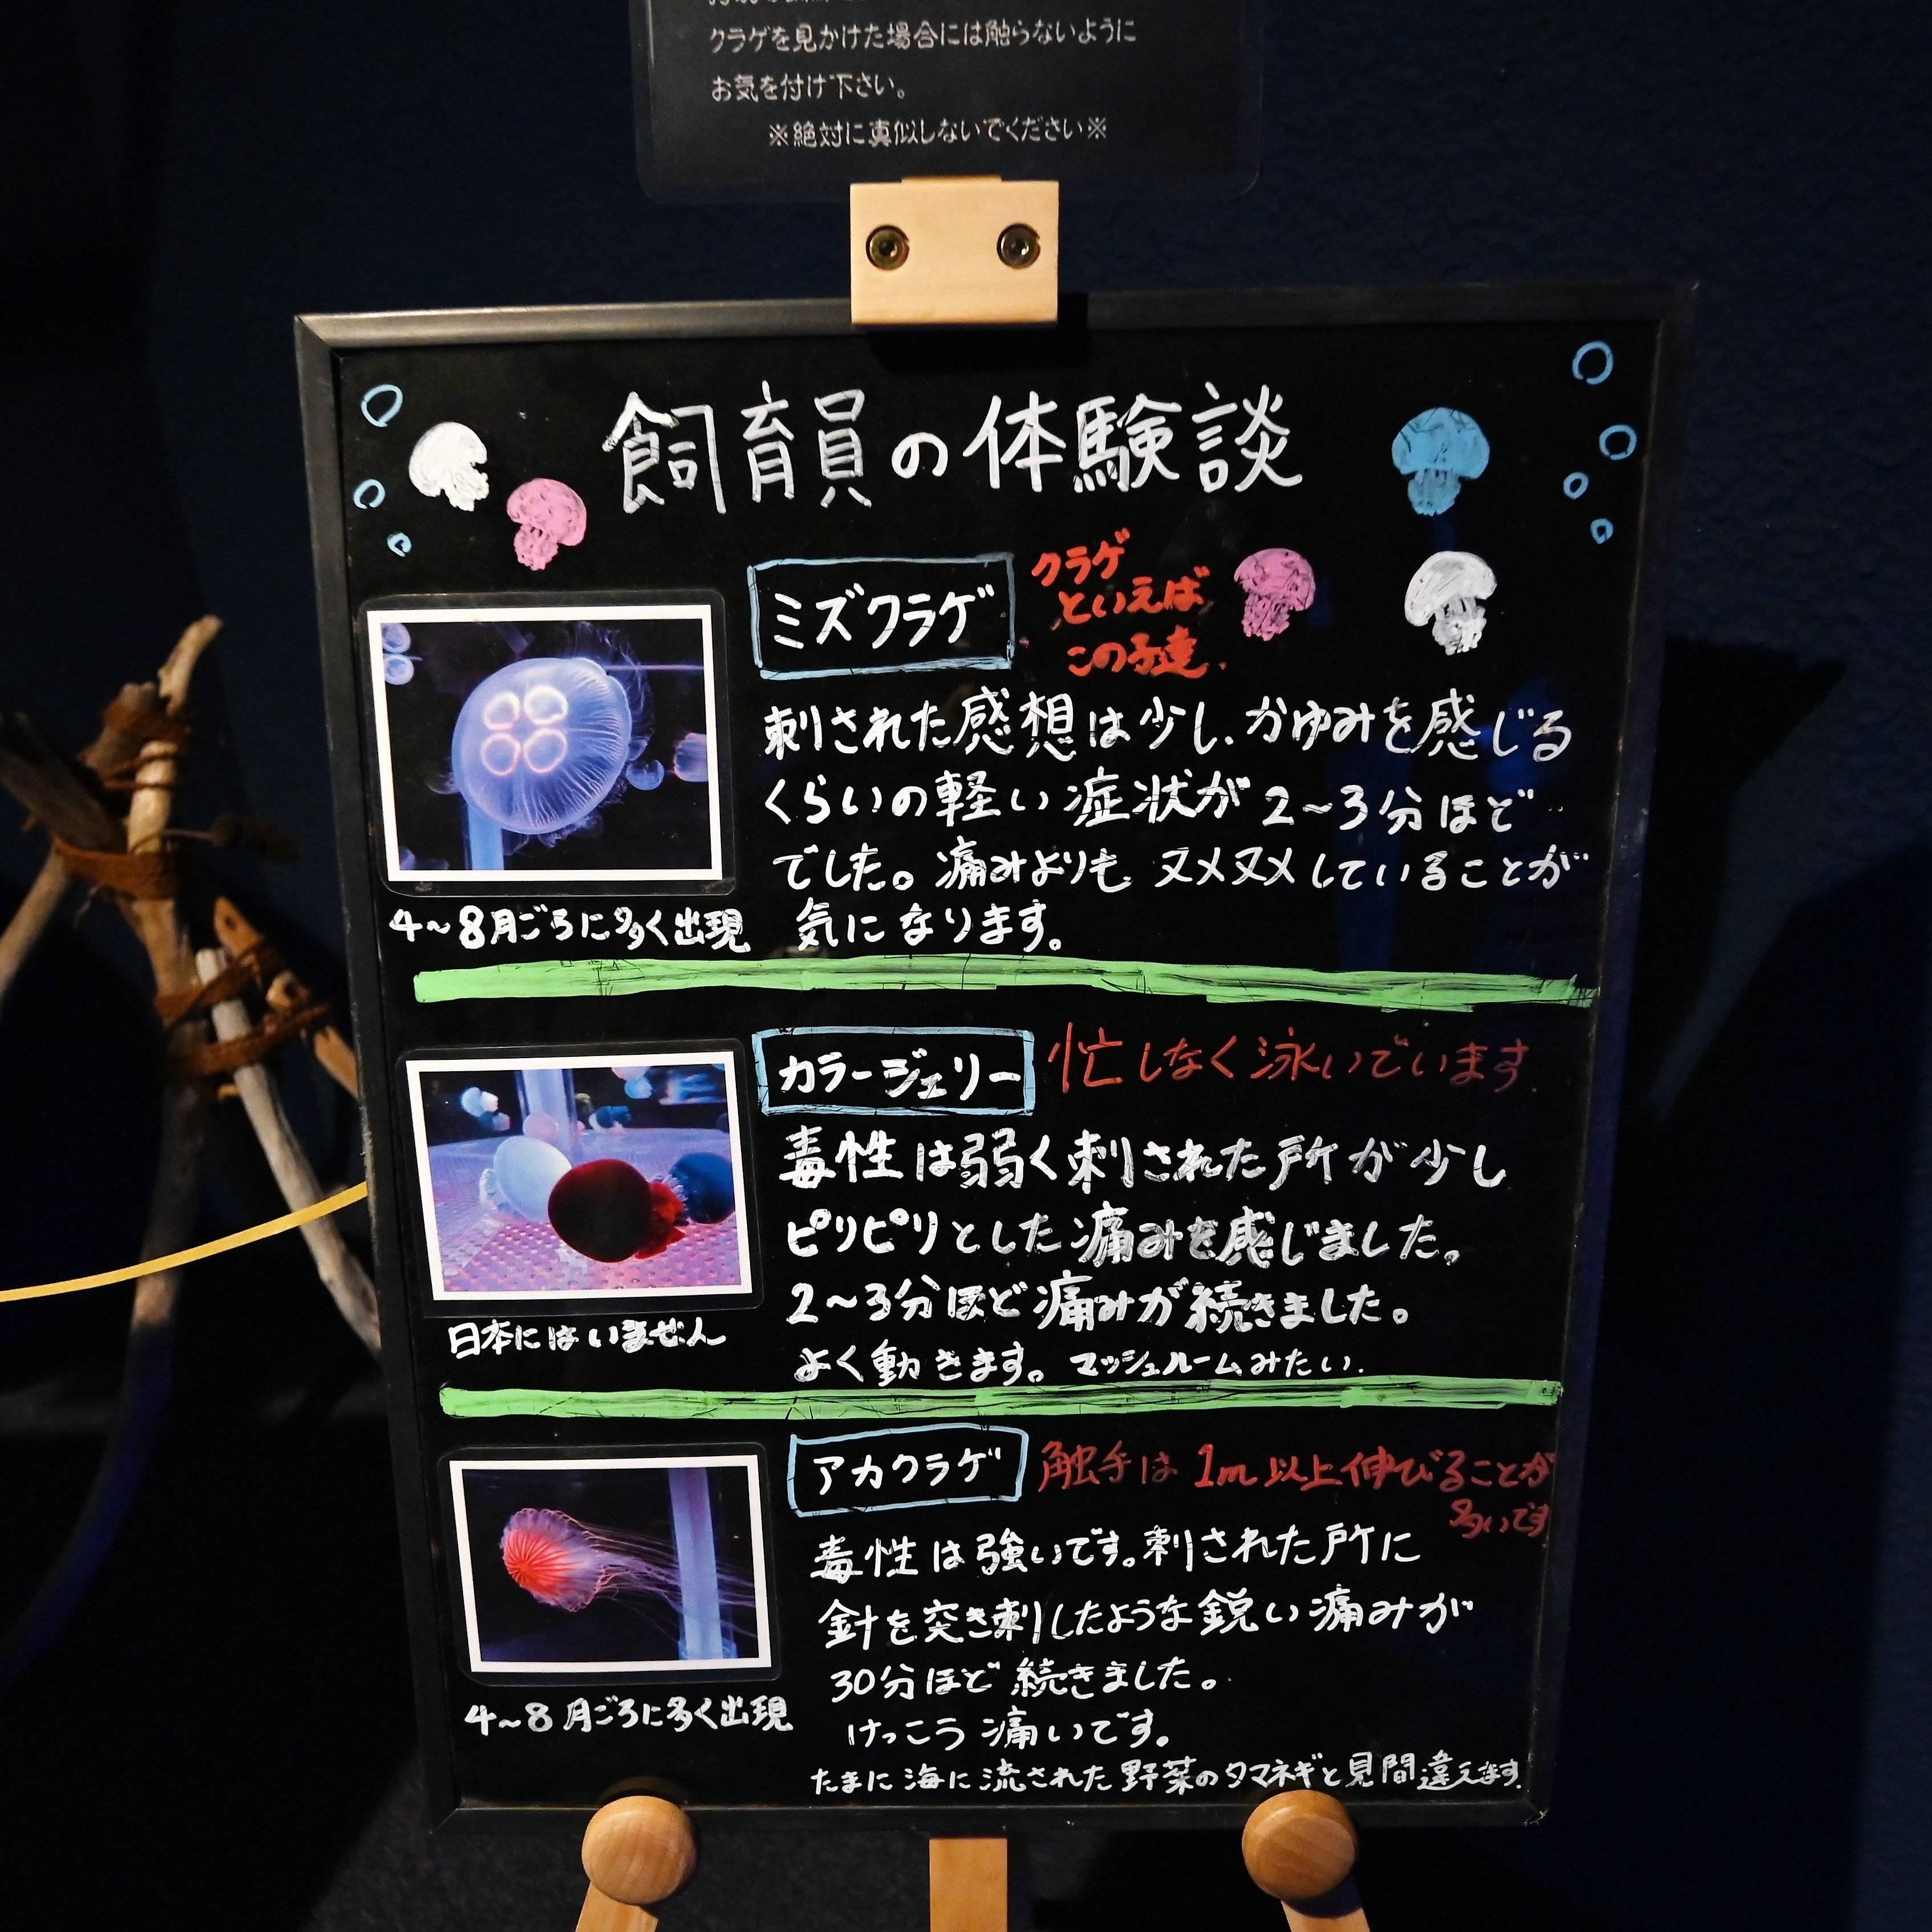 クラゲを見かけた場合には触らないように
お気を付け下さい。
※絶対に真似しないでください※
飼育員の体験談
ミズクラゲ
クラゲ
といえば
この子達.
刺された感想は少し、かゆみを感じる
くらいの軽い症状が2~3分ほど
でした。痛みよりも ヌメヌメしていることが
気になります。
4~8月ごろに多く出現
カラージェリー
忙しなく泳いでいます.
毒性は弱く刺された所が少し
ピリピリとした痛みを感じました。
2~3分ほど痛みが続きました。
よく動きます。マッシュルームみたい.
日本にはいません
アカクラゲ
触手は1m以上伸びることが
多いです
毒性は強いです。刺された所に
針を突き刺したような鋭い痛みが
30分ほど続きました。
けっこう痛いです。
たまに海に流された野菜のタマネギと見間違えます.
4~8月ごろに多く出現